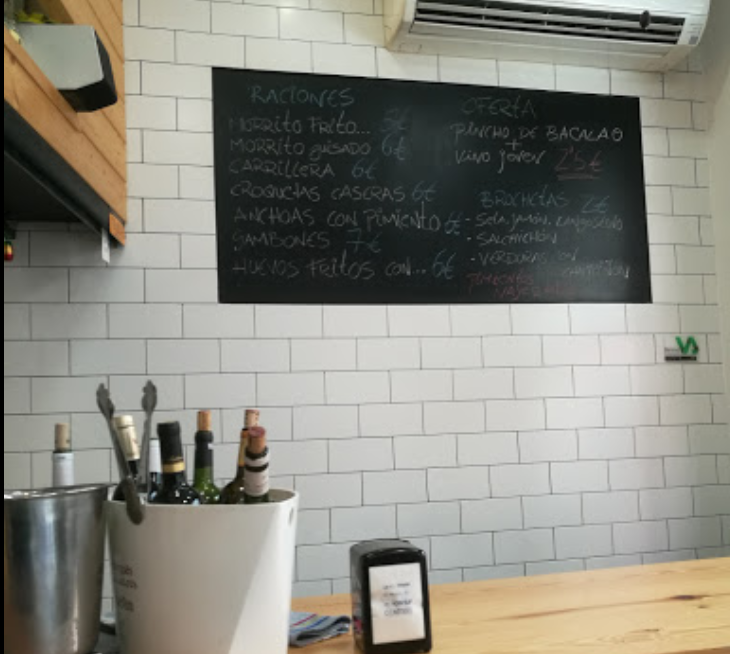 RACIONES
MORRITO FRITO... 5€
MORRITO GUISADO 6€
CARRILLERA 6€
CROQUETAS CASERAS 6€
ANCHOAS CON PIMIENTO 6€
GAMBONES 7€
HUEVOS FRITOS CON... 6€
OFERTA
PINCHO DE BACALAO
+
VINO JOVEN 2'5€
BROCHETAS 2€
- SETA, JAMÓN, LANGOSTINO
- SALCHICHÓN
- VERDURAS CON
CHAMPIÑON